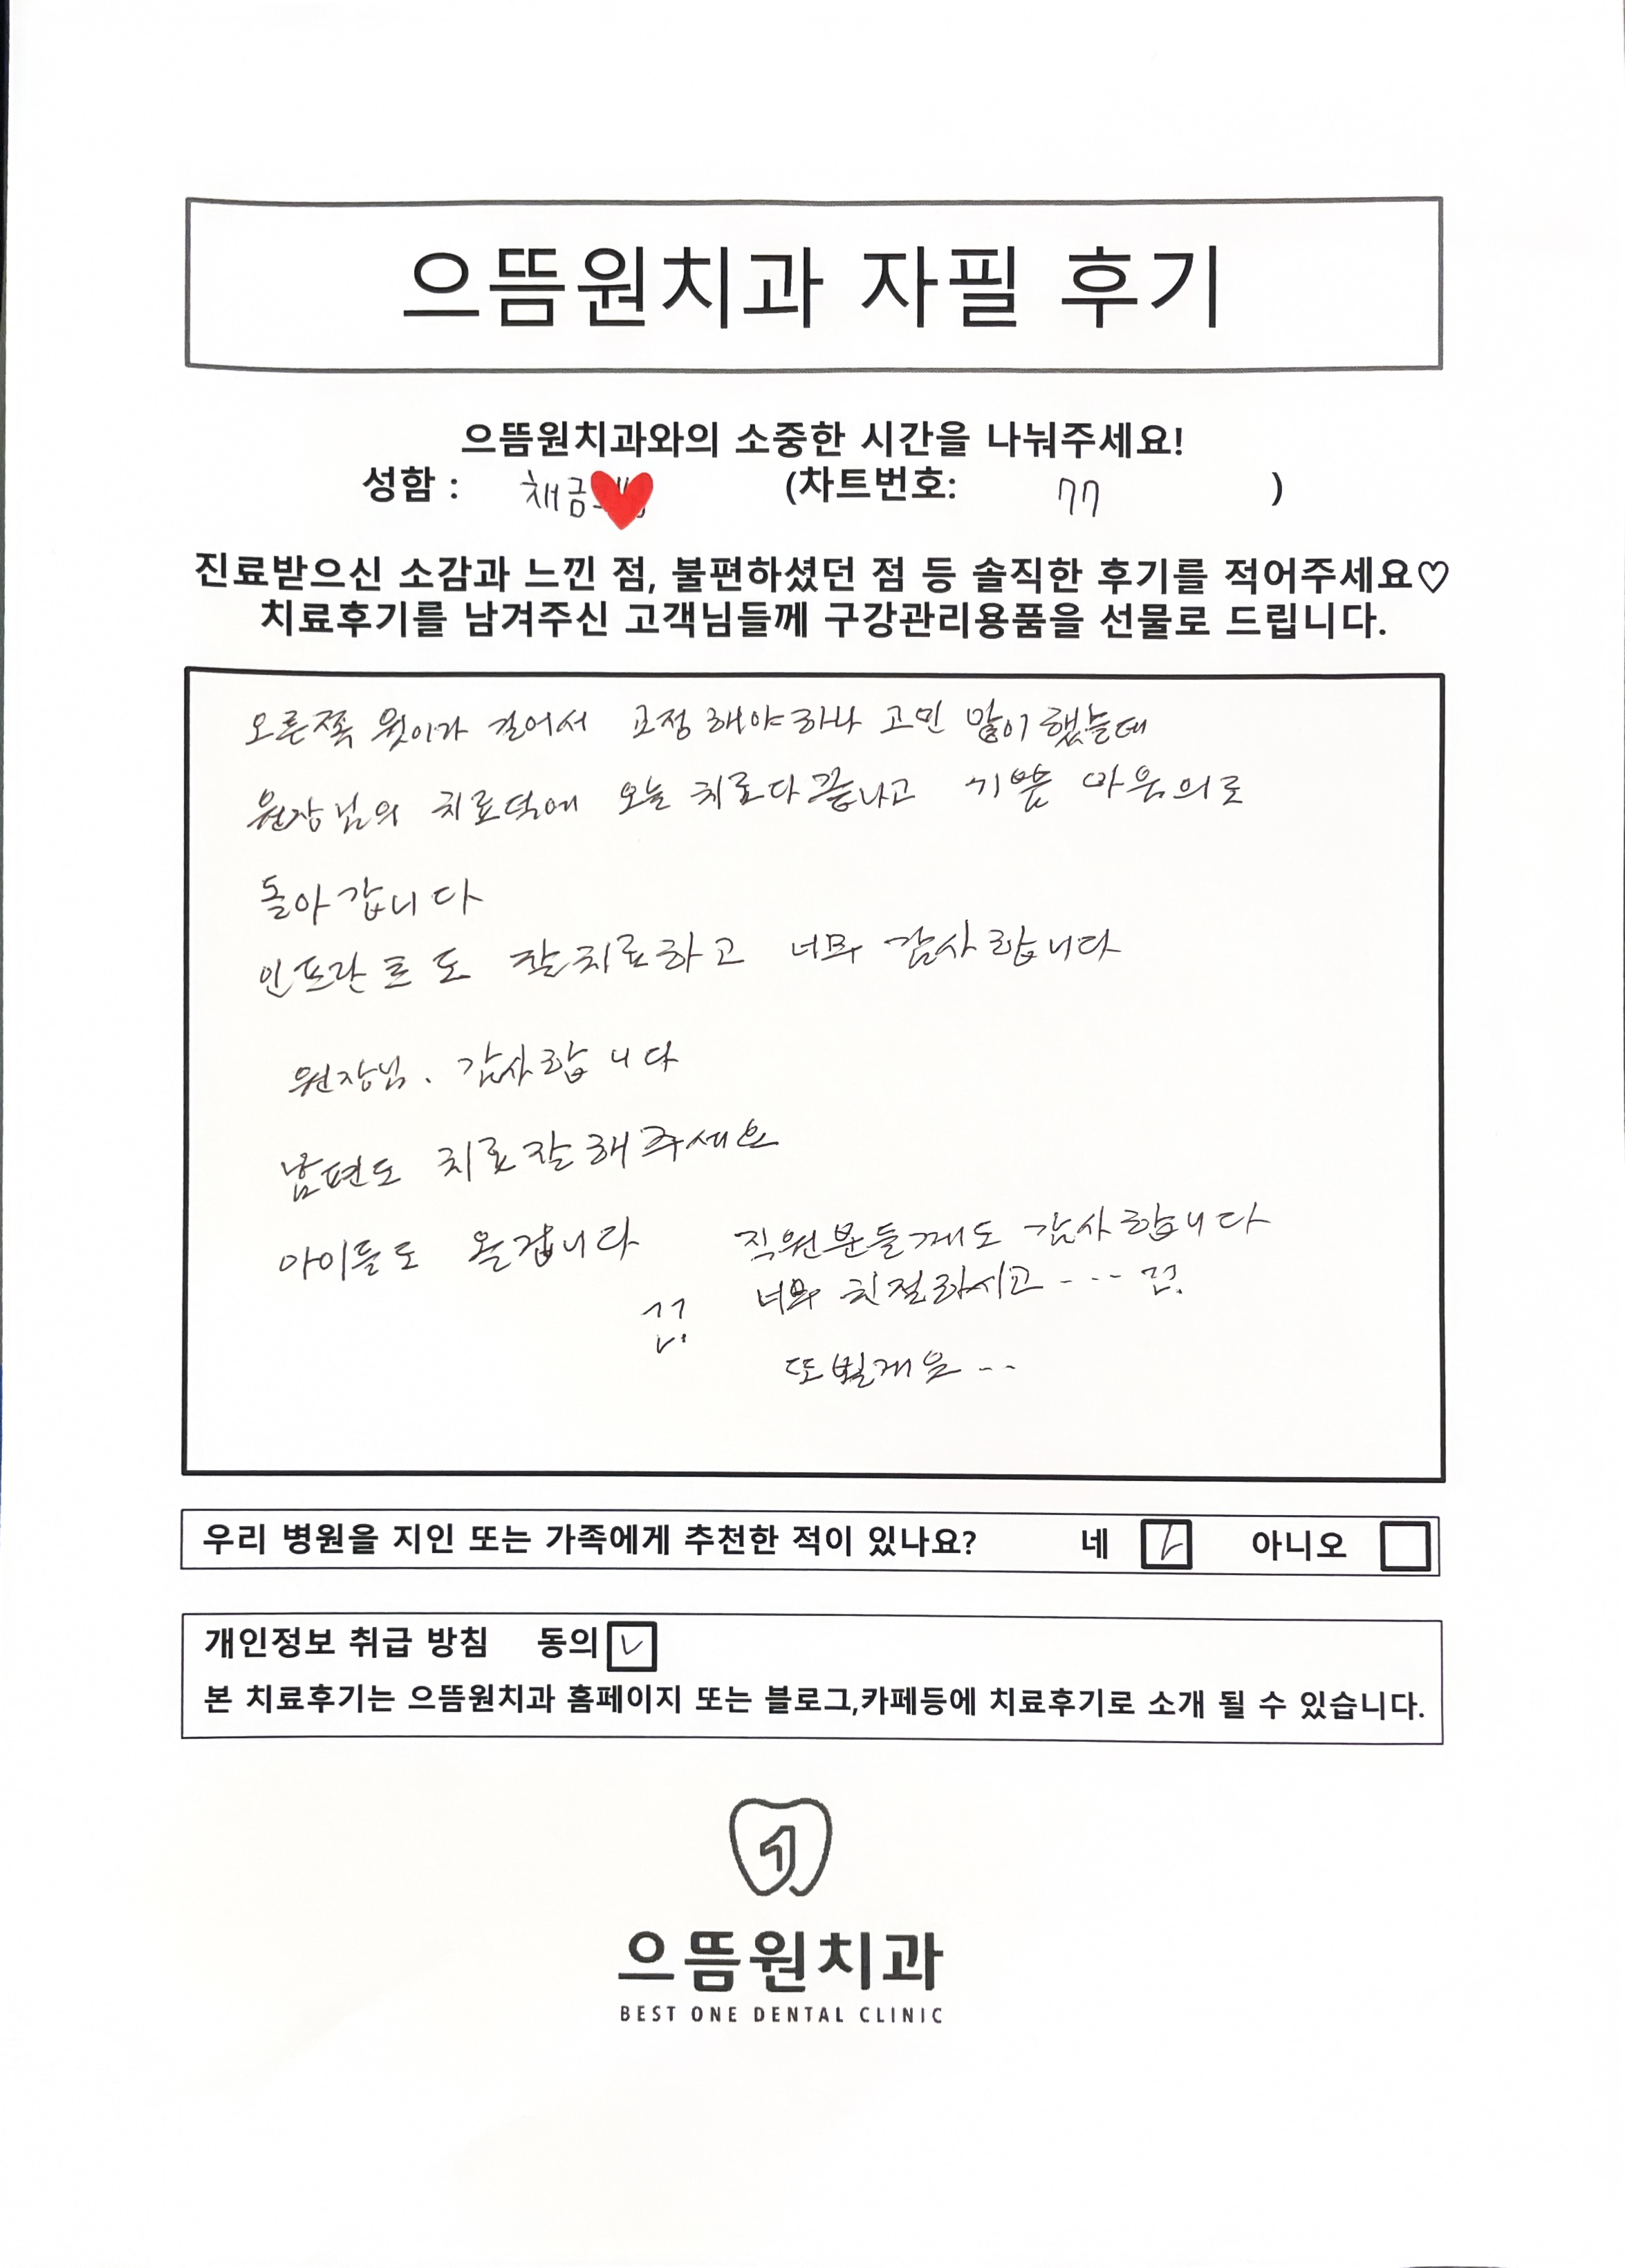 으뜸원치과 자필 후기
으뜸원치과와의 소중한 시간을 나눠주세요!
성함 : 채금 (차트번호: 77 )
진료받으신 소감과 느낀 점, 불편하셨던 점 등 솔직한 후기를 적어주세요♡
치료후기를 남겨주신 고객님들께 구강관리용품을 선물로 드립니다.
오른쪽 윗이가 길어서 교정해야하나 고민 많이 했는데
원장님의 치료덕에 오늘 치료다끝나고 기쁜 마음의로
돌아갑니다
인프란트도 잘치료하고 너무 감사합니다
원장님. 감사합니다
남편도 치료잘해주세요
아이들도 올겁니다
꾸.
직원분들께도 감사합니다
너무 친절하시고---- 꾸.
또뵐게요--
우리 병원을 지인 또는 가족에게 추천한 적이 있나요? 네 아니오
개인정보 취급 방침 동의
본 치료후기는 으뜸원치과 홈페이지 또는 블로그,카페등에 치료후기로 소개 될 수 있습니다.
1
으뜸원치과
BEST ONE DENTAL CLINIC